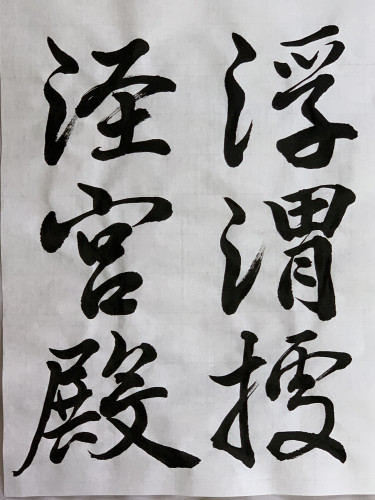 浮渭據
泾宮殿